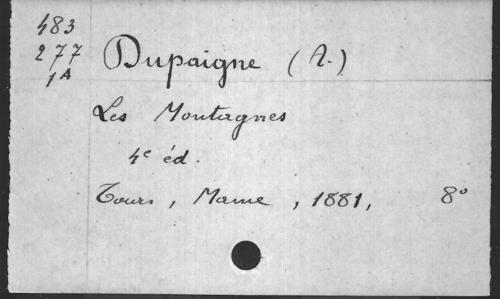 483
277
1A
Dupaigne (A.)
Les Montagnes
4e éd.
Tours, Mame, 1881, 8°